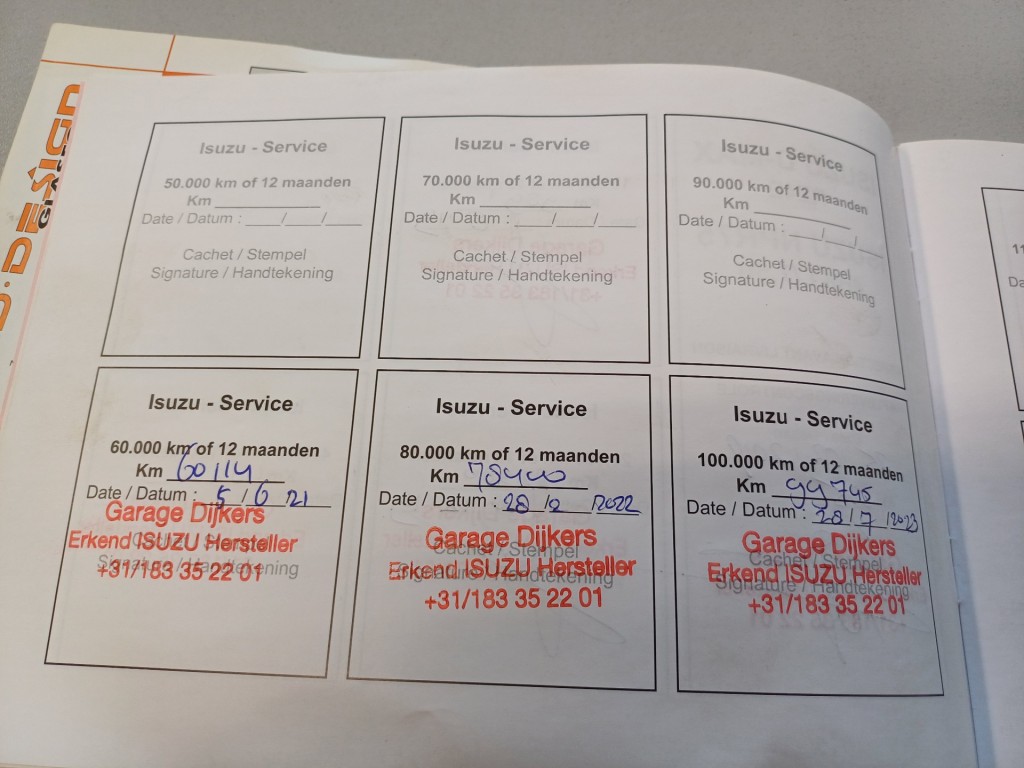 Isuzu - Service
50.000 km of 12 maanden
Km ____________
Date / Datum : ____/____/____
Cachet / Stempel
Signature / Handtekening
Isuzu - Service
70.000 km of 12 maanden
Km ____________
Date / Datum : ____/____/____
Cachet / Stempel
Signature / Handtekening
Isuzu - Service
90.000 km of 12 maanden
Km ____________
Date / Datum : ____/____/____
Cachet / Stempel
Signature / Handtekening
Isuzu - Service
60.000 km of 12 maanden
Km 60114
Date / Datum : 5 / 6 21
Garage Dijkers
Erkend ISUZU Hersteller
Cachet / Stempel
+31/183 35 22 01
Signature / Handtekening
Isuzu - Service
80.000 km of 12 maanden
Km 78400
Date / Datum : 28 / 2 / 2022
Garage Dijkers
Cachet / Stempel
Erkend ISUZU Hersteller
Signature / Handtekening
+31/183 35 22 01
Isuzu - Service
100.000 km of 12 maanden
Km 99745
Date / Datum : 28 / 7 / 2023
Garage Dijkers
Cachet / Stempel
Erkend ISUZU Hersteller
Signature / Handtekening
+31/183 35 22 01